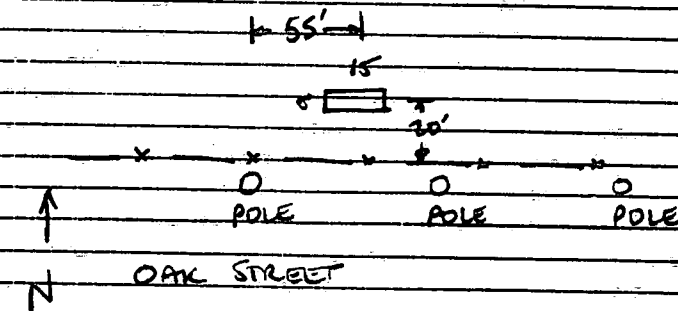 55'
15
8
20'
POLE POLE POLE
OAK STREET
N